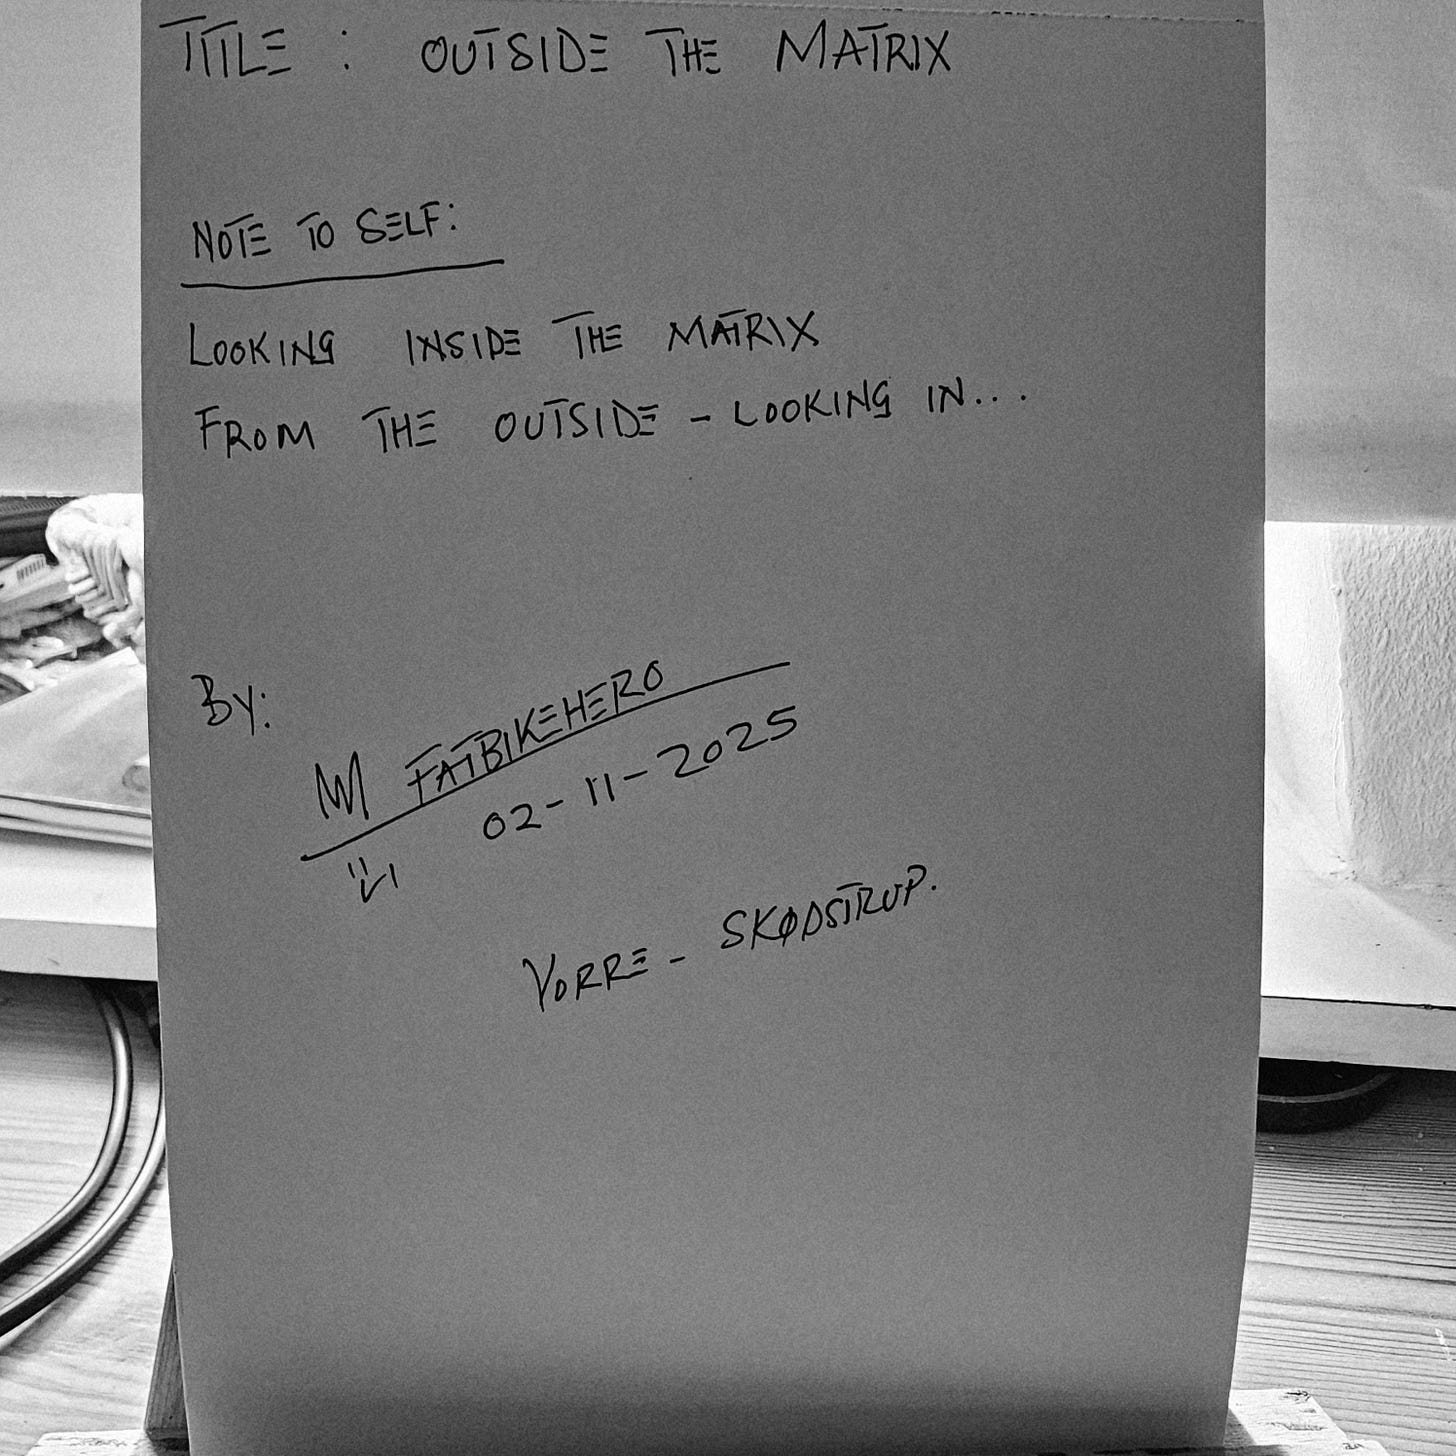 TITLE : OUTSIDE THE MATRIX
NOTE TO SELF:
LOOKING INSIDE THE MATRIX
FROM THE OUTSIDE - LOOKING IN...
BY:
FATBIKEHERO
02-11-2025
VORRE - SKØDSTRUP.